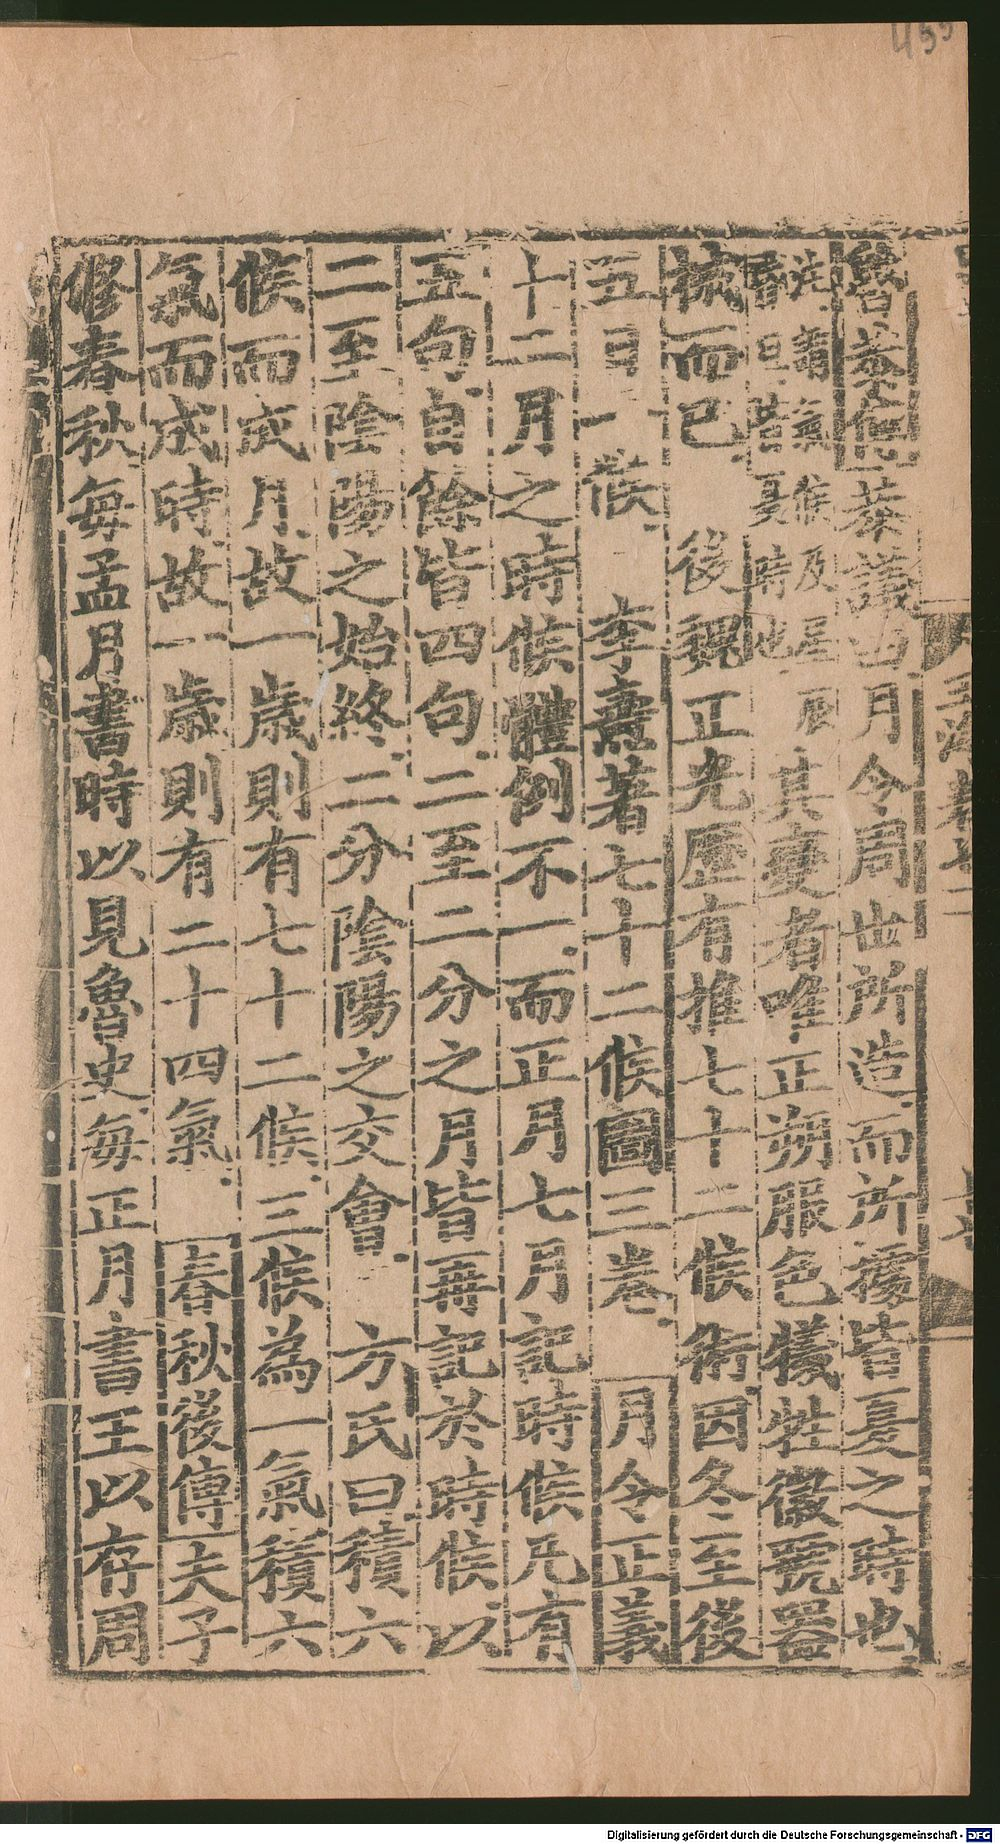 魯恭傳恭議曰月令周世所造而所據皆夏之時也
注謂氣候及星辰昏旦皆夏時也其變者唯正朔服色犧牲徽號器
械而已 後魏正光歷有推七十二候術因冬至後
五日一候 李業著七十二候圖三卷 月令正義
十二月之時候體例不一而正月七月記時候凡有
五句自餘皆四句二至二分之月皆再記於時候以
二至陰陽之始終二分陰陽之交會 方氏曰積六
候而成月故一歲則有七十二候三候為一氣積六
氣而成時故一歲則有二十四氣 春秋後傳夫子
修春秋每孟月書時以見魯史每正月書王以存周
Digitalisierung gefördert durch die Deutsche Forschungsgemeinschaft - DFG